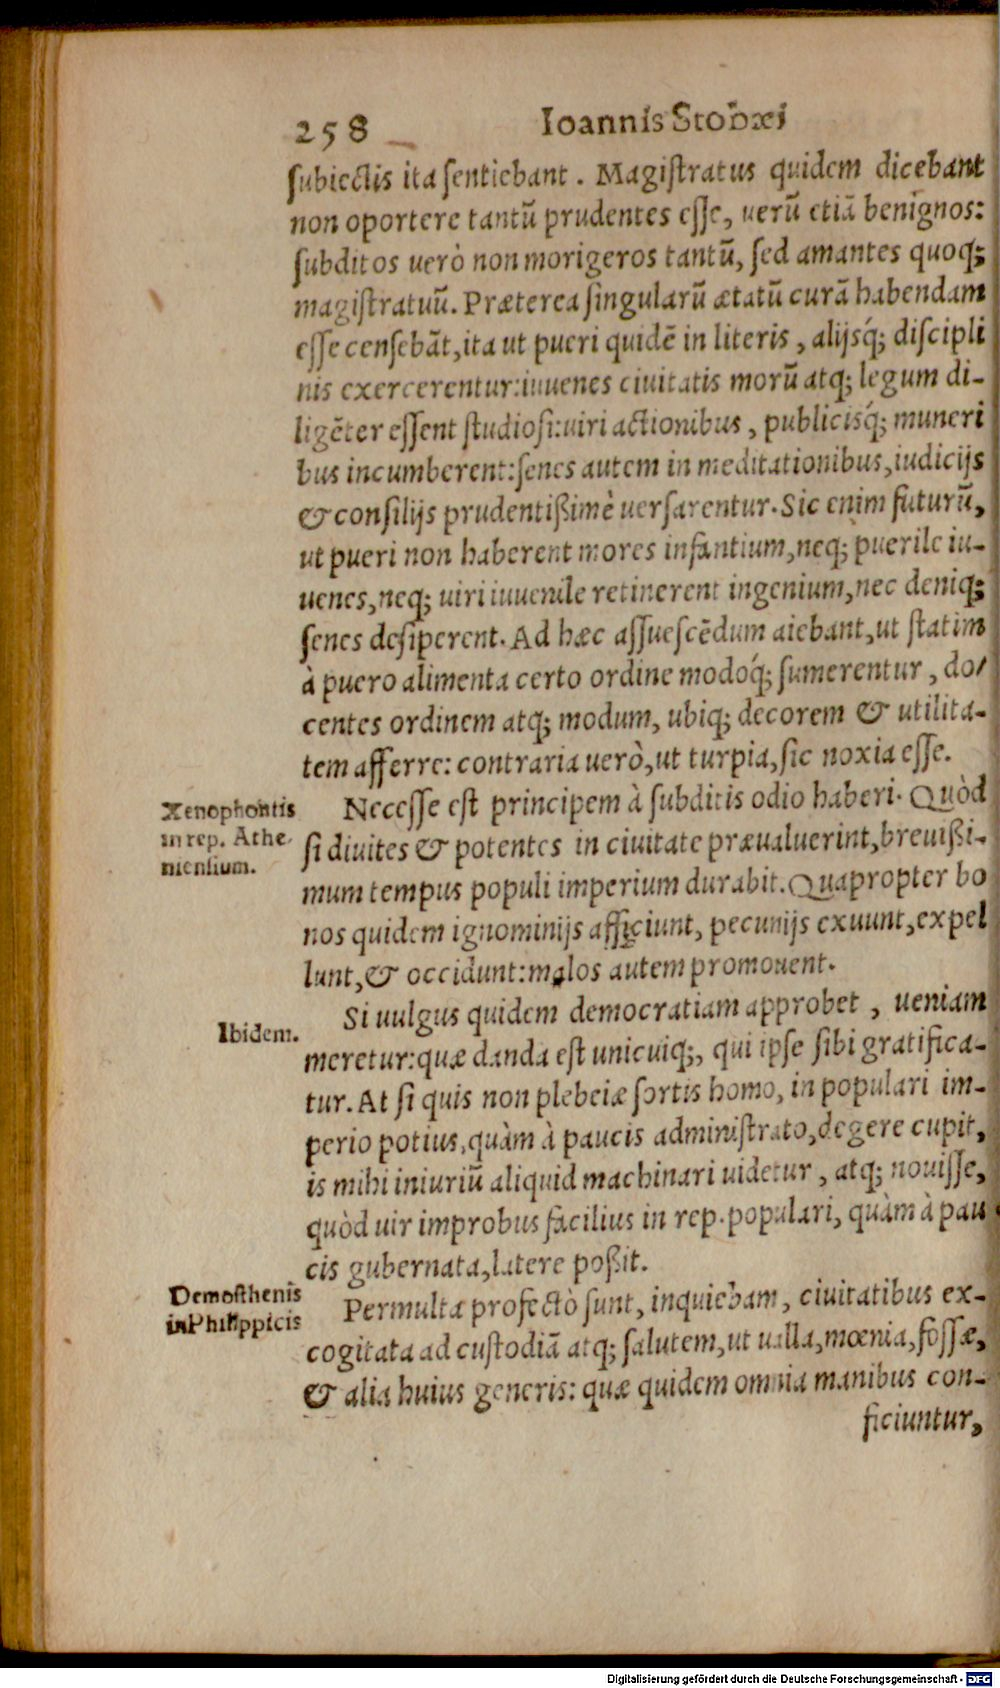 258 Ioannis Stobæi
subiectis ita sentiebant. Magistratus quidem dicebant
non oportere tantũ prudentes esse, uerũ etiã benignos:
subditos uerò non morigeros tantũ, sed amantes quoq;
magistratuũ. Præterea singularũ ætatũ curã habendam
esse censebãt, ita ut pueri quidẽ in literis, alijsq́; discipli
nis exercerentur: iuuenes ciuitatis morũ atq; legum di-
ligẽter essent studiosi: uiri actionibus, publicisq́; muneri
bus incumberent: senes autem in meditationibus, iudicijs
& consilijs prudentißimè uersarentur. Sic enim futurũ,
ut pueri non haberent mores infantium, neq; puerile iu-
uenes, neq; uiri iuuenile retinerent ingenium, nec deniq;
senes desiperent. Ad hæc assuescẽdum aiebant, ut statim
à puero alimenta certo ordine modoq́; sumerentur, do/
centes ordinem atq; modum, ubiq; decorem & utilita-
tem afferre: contraria uerò, ut turpia, sic noxia esse.
Xenophontis
in rep. Athe
niensium.
Necesse est principem à subditis odio haberi. Quòd
si diuites & potentes in ciuitate præualuerint, breuißi-
mum tempus populi imperium durabit. Quapropter bo
nos quidem ignominijs afficiunt, pecunijs exuunt, expel
lunt, & occidunt: malos autem promouent.
Ibidem.
Si uulgus quidem democratiam approbet, ueniam
meretur: quæ danda est unicuiq;, qui ipse sibi gratifica-
tur. At si quis non plebeiæ sortis homo, in populari im-
perio potius, quàm à paucis administrato, degere cupit,
is mihi iniuriũ aliquid machinari uidetur, atq; nouisse,
quòd uir improbus facilius in rep. populari, quàm à pau
cis gubernata, latere poßit.
Demosthenis
in Philippicis
Permulta profectò sunt, inquiebam, ciuitatibus ex-
cogitata ad custodiã atq; salutem, ut ualla, mœnia, fossæ,
& alia huius generis: quæ quidem omnia manibus con-
ficiuntur,
Digitalisierung gefördert durch die Deutsche Forschungsgemeinschaft - DFG